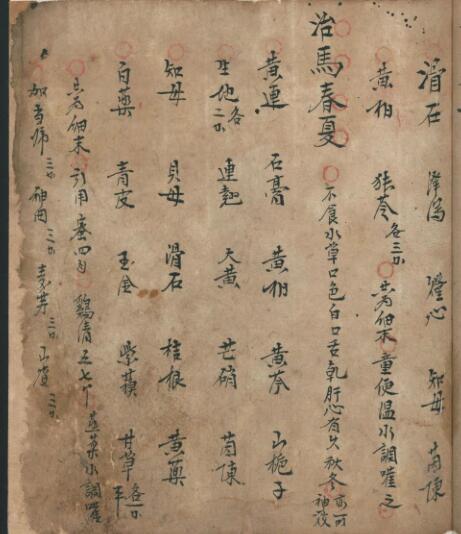 滑石 澤瀉 燈心 知母 茵陳
黃柏 猪苓各三分 共为細末童便温水調嚾之
治馬春夏 不食水草口色白口舌乾肝心有火秋冬亦可
黃連 石膏 黃柏 黃芩 山栀子
生地各二分 連翹 大黃 芒硝 茵陳
知母 貝母 滑石 桂根 黃藥
白藥 青皮 玉金 紫 甘草各一分
共为細末引用蜜四 鷄清五七个 菜水調嚾
如 三分 神曲三分 麦芽三分 山查三分